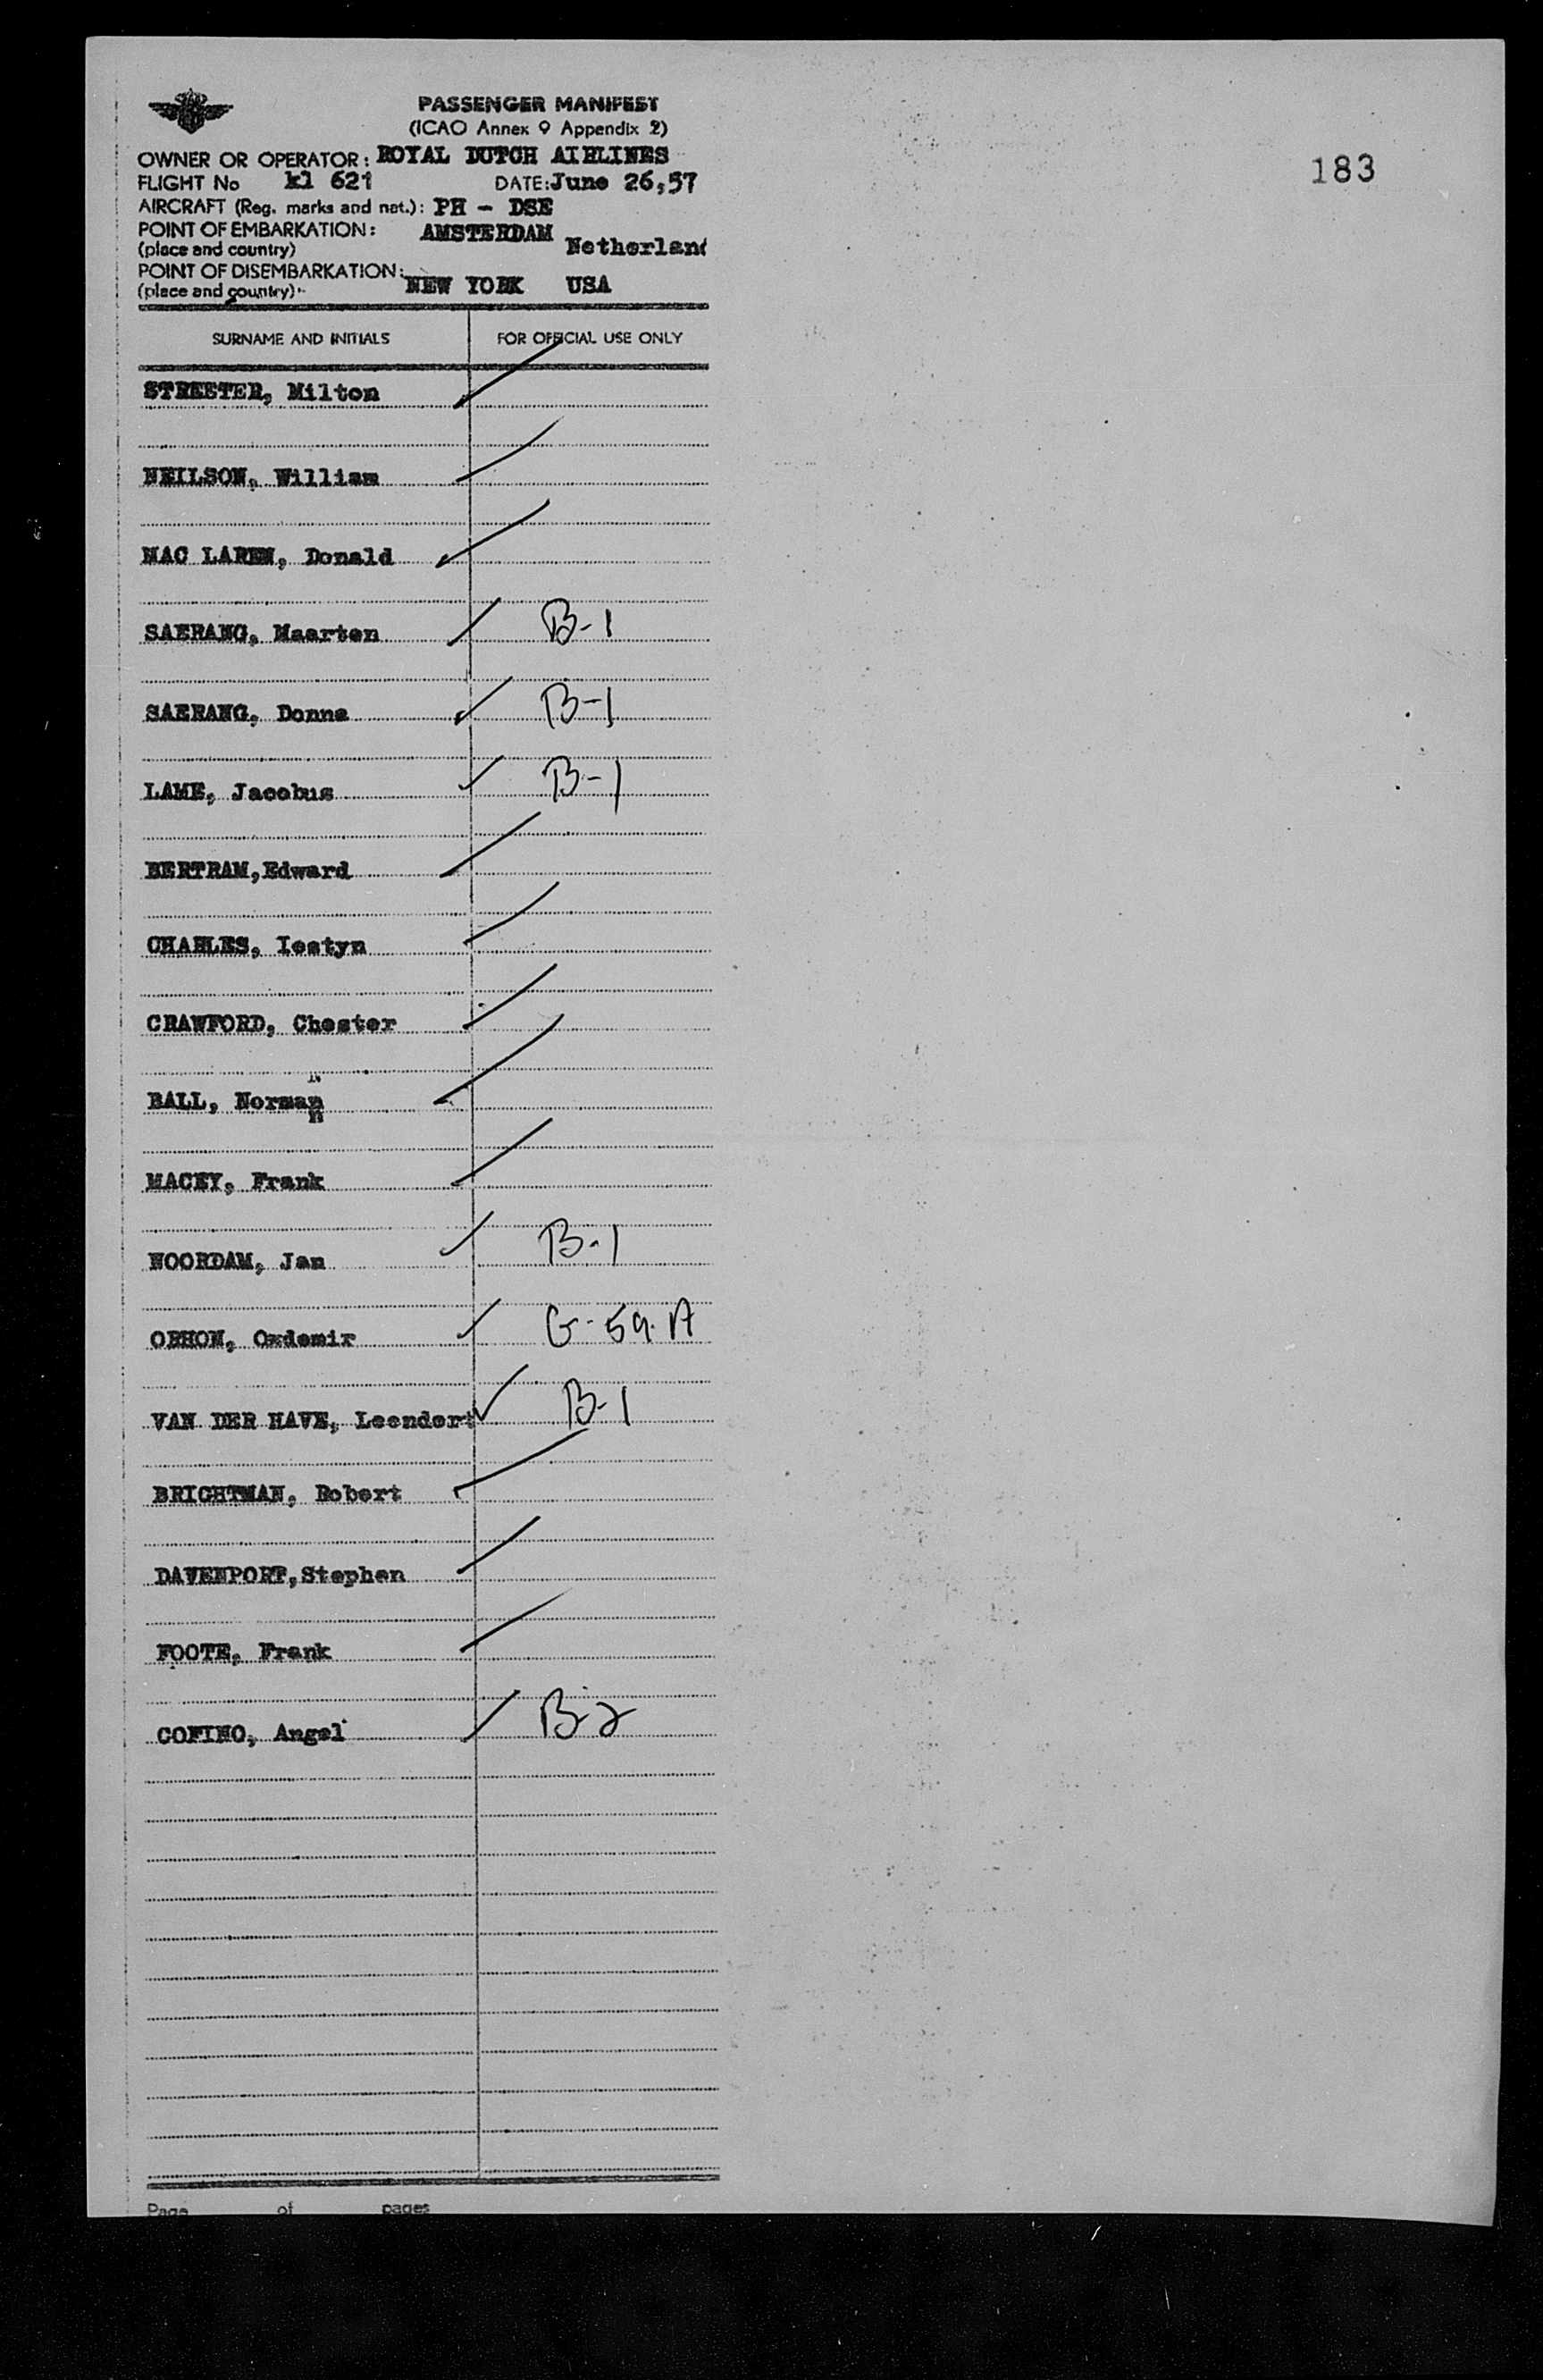 PASSENGER MANIFEST
(ICAO Annex 9 Appendix 2)
183
OWNER OR OPERATOR: ROYAL DUTCH AIRLINES
FLIGHT No kl 621 DATE: June 26,57
AIRCRAFT (Reg. marks and nat.): PH - DSE
POINT OF EMBARKATION: AMSTERDAM
(place and country) Netherland
POINT OF DISEMBARKATION:
(place and country) NEW YORK USA
SURNAME AND INITIALS FOR OFFICIAL USE ONLY
STREETER, Milton
NEILSON, William
MAC LAREN, Donald
SAERANG, Maarten B-1
SAERANG, Donna B-1
LAME, Jacobus B-1
BERTRAM,Edward
CHARLES, Iestyn
CRAWFORD, Chester
BALL, Norman
MACEY, Frank
NOORDAM, Jan B-1
ORHON, Ozdemir G-59-A
VAN DER HAVE, Leendert B-1
BRIGHTMAN, Robert
DAVENPORT,Stephen
FOOTE, Frank
COFINO, Angel B-2
Page of pages